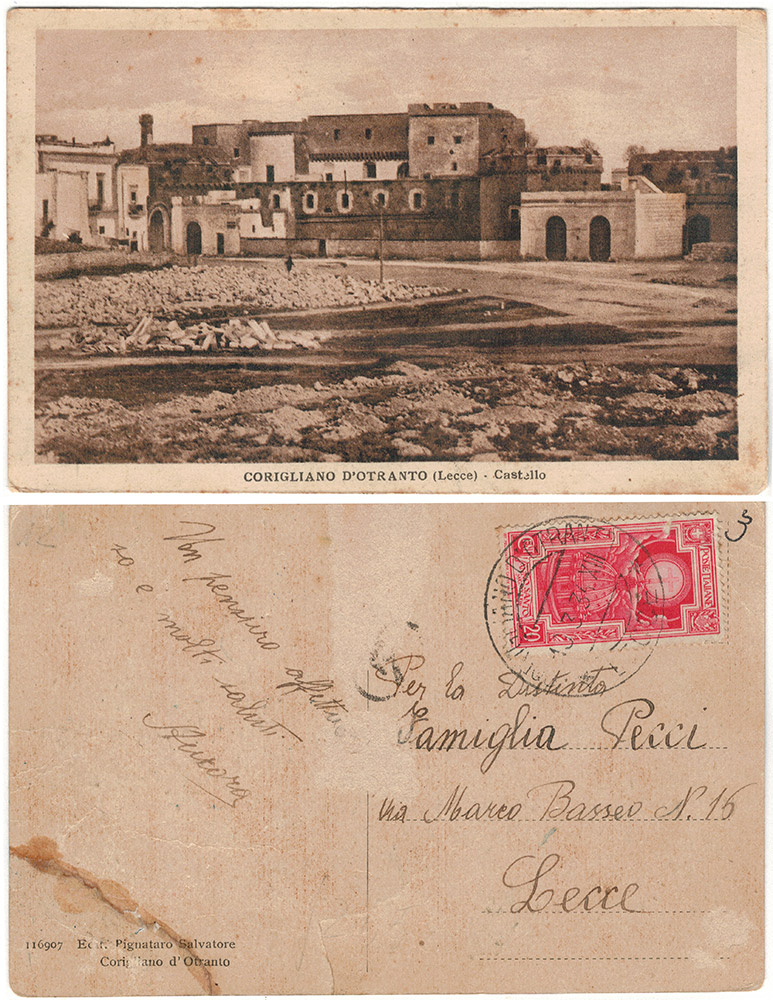 CORIGLIANO D'OTRANTO (Lecce) - Castello
3
POSTE ITALIANE
20
Un pensiero affettuo
so e molti saluti
Aurora
Per la Distinta
Famiglia Pecci
Via Marco Basseo N. 16
Lecce
116907 Edit. Pignataro Salvatore
Corigliano d'Otranto